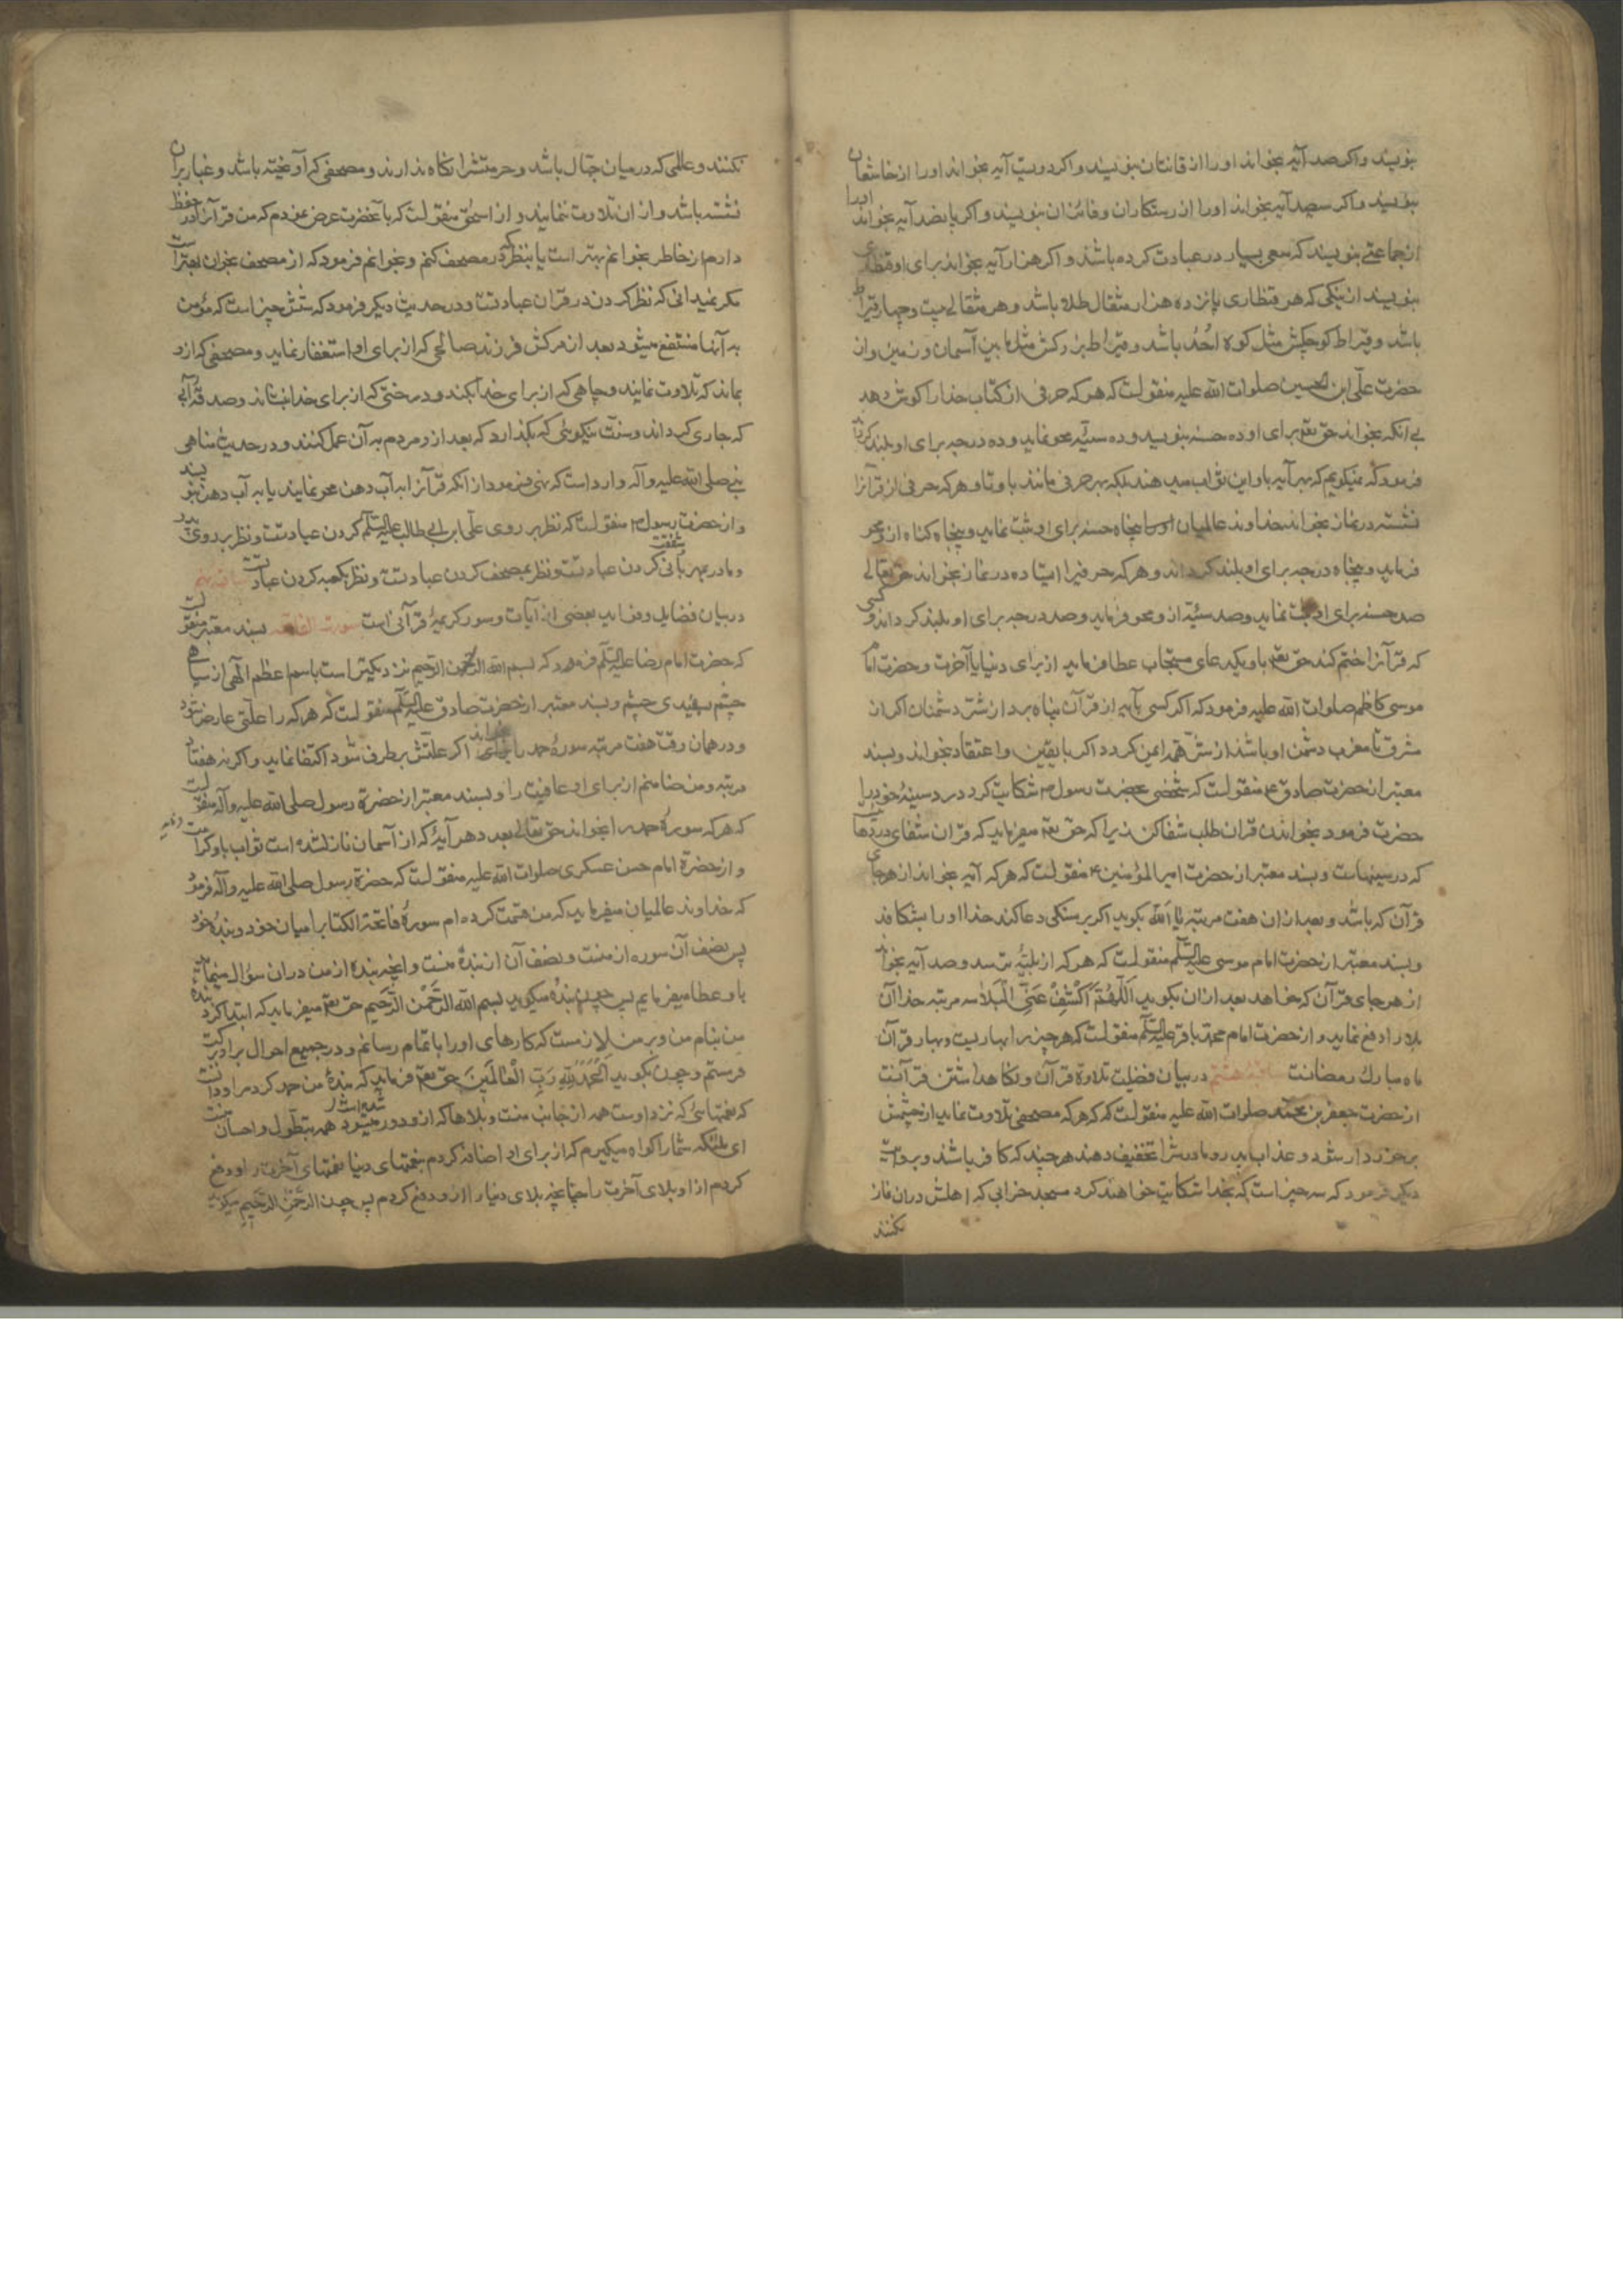 بنویسند و اکر صد آیه بخواند او را از قانتان بنویسند و اکر دویست آیه بخواند او را از خاشعان
بنویسند و اکر سیصد آیه بخواند او را از رستکاران و فائزان بنویسند و اکر پانصد آیه بخواند او را
از جماعتی بنویسند که سعی بسیار در عبادت کرده باشند و اکر هزار آیه بخواند برای او قنطاری
بنویسند از نیکی که هر قنطاری پانزده هزار مثقال طلا باشد و هر مثقالی بیست و چهار قیراط
باشد و قیراط کوچکش مثل کوه اُحُد باشد و قیراط بزرکش مثل مابین آسمان و زمین و از
حضرت علّی ابن الحسین صلوات الله علیه منقولست که هر که حرفی از کتاب خدا را کوش دهد
بی آنکه بخواند حق تعم برای او ده حسنه بنویسد و ده سیّئه محو نماید و ده درجه برای او بلند کرداند
فرمود که نمیکویم که بهر آیه باو این ثواب میدهند بلکه بهر حرفی مانند با و تا و هر که حرفی از قرآنرا
نشسته در نماز بخواند خداوند عالمیان پنجاه حسنه برای او ثبت نماید و پنجاه کناه از و محو
فرماید و پنجاه درجه برای او بلند کرداند و هر که حرفیرا ایستاده در نماز بخواند حق تعالی
صد حسنه برای او ثبت نماید و صد سیّئه از و محو فرماید و صد درجه برای او بلند کرداند و کسی
که قرآنرا ختم کند حق تعم باو یکدعای مستجاب عطا فرماید از برای دنیا یا آخرت و حضرت امام
موسی کاظم صلوات الله علیه فرمود که اکر کسی بآیه از قرآن پناه برد از شرّ دشمنان اکر از
مشرق تا مغرب دشمن او باشند از شرّ همه ایمن کردد اکر با یقین و اعتقاد بخواند و بسند
معتبر از حضرت صادق ع منقولست که شخصی بحضرت رسول ص شکایت کرد درد سینهٔ خود را
حضرت فرمود بخواندن قرآن طلب شفا کن زیرا که حق تعم میفرماید که قرآن شفای دردهاییست
که در سینهاست و بسند معتبر از حضرت امیر المؤمنین ع منقولست که هر که صد آیه بخواند از هر جای
قرآن که باشد و بعد از ان هفت مرتبه یا اَلله بکوید اکر بر سنکی دعا کند خدا او را بشکافد
و بسند معتبر از حضرت امام موسی علیه السّلم منقولست که هر که از بلیّه بترسد و صد آیه بخواند
از هر جای قرآن که خواهد بعد از ان بکوید اَللّهُمَّ اکْشِفْ عَنِّی الْبَلاءَ سه مرتبه خدا آن
بلا را دفع نماید و از حضرت امام محمّد باقر علیه السّلم منقولست که هر چیز را بهاریست و بهار قرآن
ماه مبارک رمضانست ساقیهٔ هشتم در بیان فضیلت تلاوة قرآن و نکاهداشتن قرآنست
از حضرت جعفر بن محمّد صلوات الله علیه منقولست که هر که مصحفی تلاوت نماید از چشمش
برخوردار شود و عذاب پدر و مادرش را تخفیف دهند هر چند که کافر باشند و بروایت
دیکر فرمود که سه چیز است که بخدا شکایت خواهند کرد مسجد خرابی که اهلش در ان نماز
نکنند
نکنند و عالمی که در میان جهّال باشد و حرمتش را نکاه ندارند و مصحفی که آویخته باشد و غبار بران
نشسته باشد و از ان تلاوت ننمایند و از اسحٰق منقولست که بآنحضرت عرض نمودم که من قرآنرا در حفظ
دارم از خاطر بخوانم بهتر است یا آنکه نظر در مصحف کنم و بخوانم فرمود که از مصحف بخوان بهتر است
مکر نمیدانی که نظر کردن در قرآن عبادتست و در حدیث دیکر فرمود که شش چیز است که مؤمن
به آنها منتفع میشود بعد از مرکش فرزند صالحی که از برای او استغفار نماید و مصحفی که از و
بماند که تلاوت نمایند و چاهی که از برای خدا بکند و درختی که از برای خدا بنشاند و صدقه آبی
که جاری کرداند و سنّت نیکوئی که بکذارد که بعد از و مردم به آن عمل کنند و در حدیث مناهی
نبی صلی الله علیه و آله وارد است که نهی فرمود از انکه قرآنرا به آب دهن محو نمایند یا به آب دهن بنویسند
و از حضرت رسول ص منقولست که نظر بر روی علّی ابن ابی طالب علیه السّلم کردن عبادتست و نظر بر روی پدر
و مادر بمهربانی و شفقت کردن عبادتست و نظر بمصحف کردن عبادتست و نظر بکعبه کردن عبادتست ساقیهٔ نهم
در بیان فضایل و فواید بعضی از آیات و سور کریمهٔ قرآنی است سورت الفاتحه بسند معتبر منقولست
که حضرت امام رضا علیه السّلم فرمود که بسم الله الرّحمن الرّحیم نزدیکتر است باسم اعظم الٓهی از سیاهی
چشم بسفیدی چشم و بسند معتبر از حضرت صادق علیه السّلم منقولست که هر که را علّتی عارض شود
و در همان وقت هفت مرتبه سورهٔ حمد را بخواند اکر علّتش بر طرف شود اکتفا نماید و اکر نه هفتاد
مرتبه و من ضامنم از برای او عافیت را و بسند معتبر از حضرة رسول صلی الله علیه و آله منقولست
که هر که سورهٔ حمد را بخواند حق تعالی بعدد هر آیهٔ که از آسمان نازلشده است ثواب باو کرامت
و از حضرة امام حسن عسکری صلوات الله علیه منقولست که حضرة رسول صلی الله علیه و آله فرمود
که خداوند عالمیان میفرماید که من قسمت کرده ام سورهٔ فاتحة الکتابرا میان خود و بندهٔ خود
پس نصف آن سوره از منست و نصف آن از بندهٔ منست و انچه بنده از من در ان سؤال مینماید
باو عطا میفرمایم پس چون بنده میکوید بسم الله الرَّحْمن الرَّحیم حق تعم میفرماید که ابتدا کرد بندهٔ
من بنام من و بر من لازمست که کارهای او را باتمام رسانم و در جمیع احوال بر او برکت
فرستم و چون بکوید اَلْحَمْدُلِلّهِ رَبِّ الْعالَمینَ حق تعم فرماید که بندهٔ من حمد کرد مرا و دانست
که نعمتهائی که نزد اوست همه از جانب منست و بلاها که از و دور میشود همه بتطوّل و احسان منست
ای ملائکه شما را کواه میکیرم که از برای او اضافه کردم بنعمتهای دنیا نعمتهای آخرت را و دفع
کردم از او بلای آخرت را چنانچه بلای دنیا را از و دفع کردم پس چون الرَّحْمنِ الرَّحیمِ میکوید